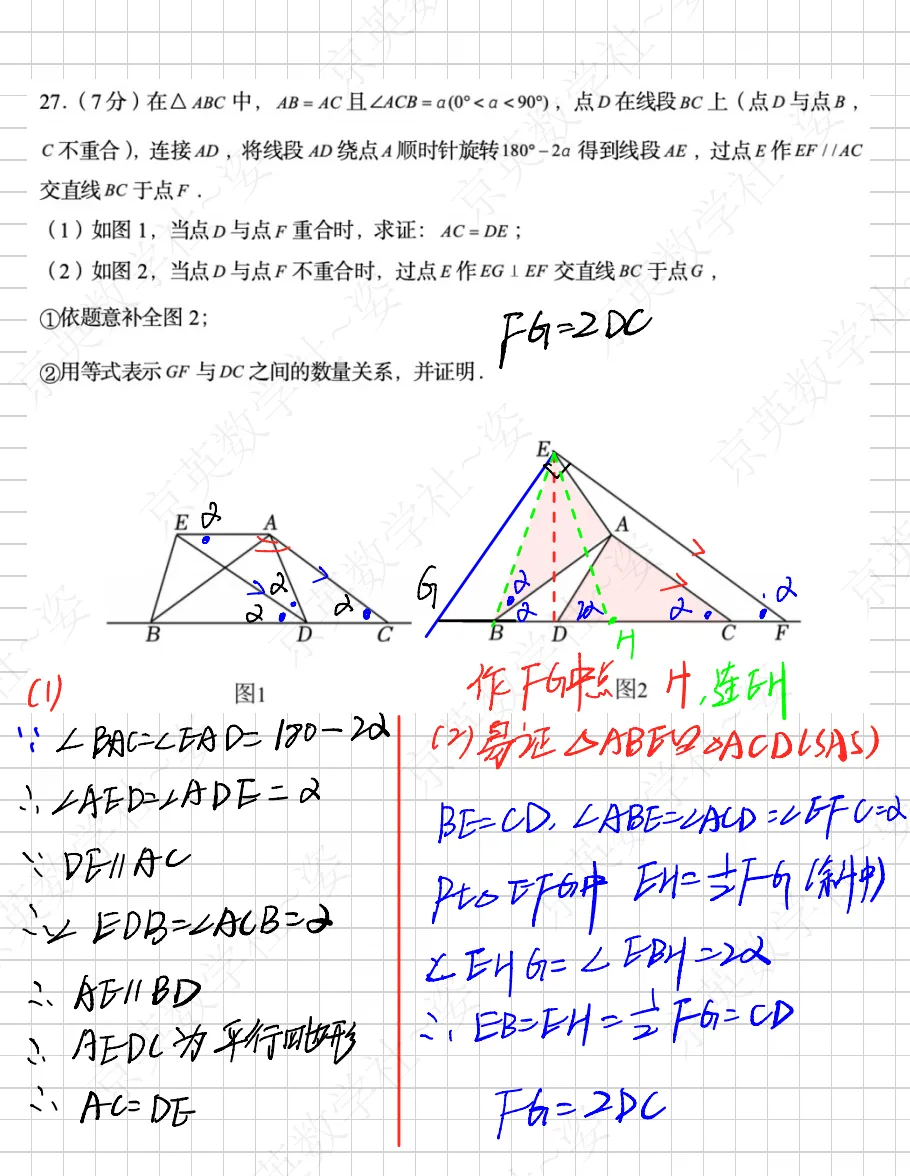 27.（7分）在△ABC中，AB=AC且∠ACB=α(0°<α<90°)，点D在线段BC上（点D与点B，
C不重合），连接AD，将线段AD绕点A顺时针旋转180°-2α得到线段AE，过点E作EF//AC
交直线BC于点F.
（1）如图1，当点D与点F重合时，求证：AC=DE；
（2）如图2，当点D与点F不重合时，过点E作EG⊥EF交直线BC于点G，
①依题意补全图2；
FG=2DC
②用等式表示GF与DC之间的数量关系，并证明.
E α A
α
α α
B D C
图1
E
A
G
α α
α 2α α
B D H C F
图2
作FG中点H,连EH
(1)
∵∠BAC=∠EAD=180-2α
∴∠AED=∠ADE=α
∵DE∥AC
∴∠EDB=∠ACB=α
∴AE∥BD
∴AEDC为平行四边形
∴AC=DE
(2)易证△ABE≌△ACD(SAS)
BE=CD,∠ABE=∠ACD=∠EFC=α
Rt△EFG中 EH=½FG(斜中)
∠EHG=∠EBH=2α
∴EB=EH=½FG=CD
FG=2DC
京英数学社~姿